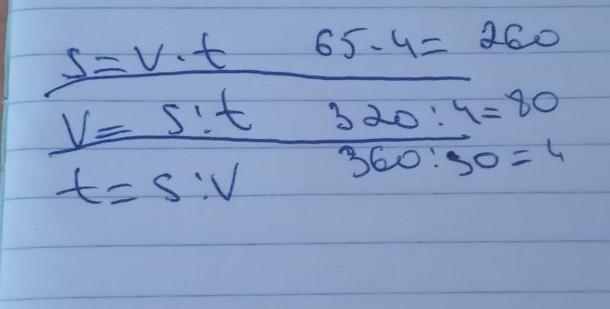 s=v·t 65·4= 260
v= s:t 320:4=80
t= s:v 360:90=4